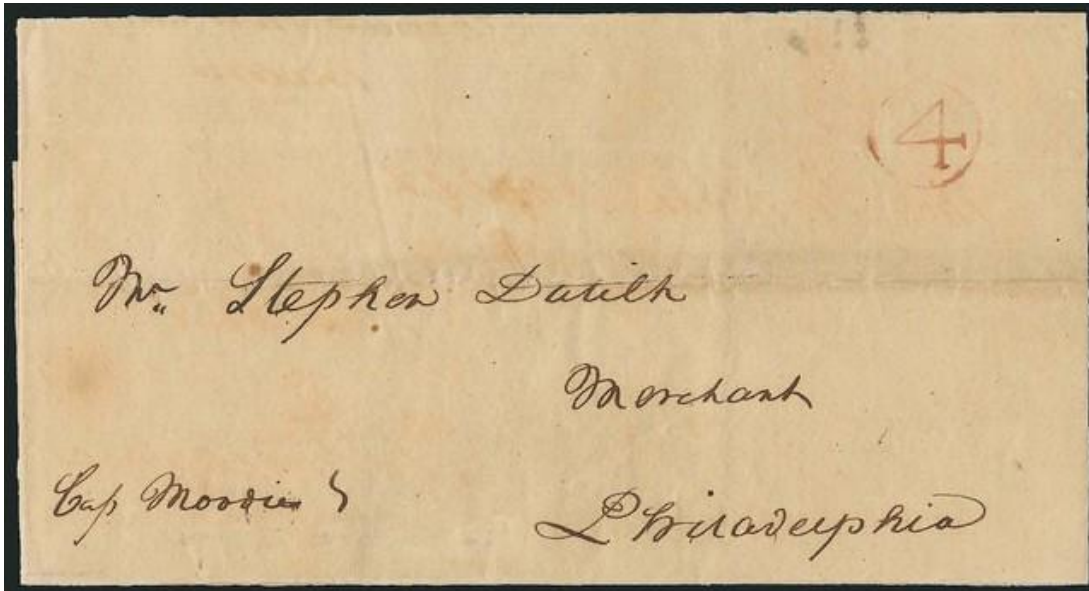 4
Mr. Stephen Dutilh
Merchant
Cap Moodie
Philadelphia